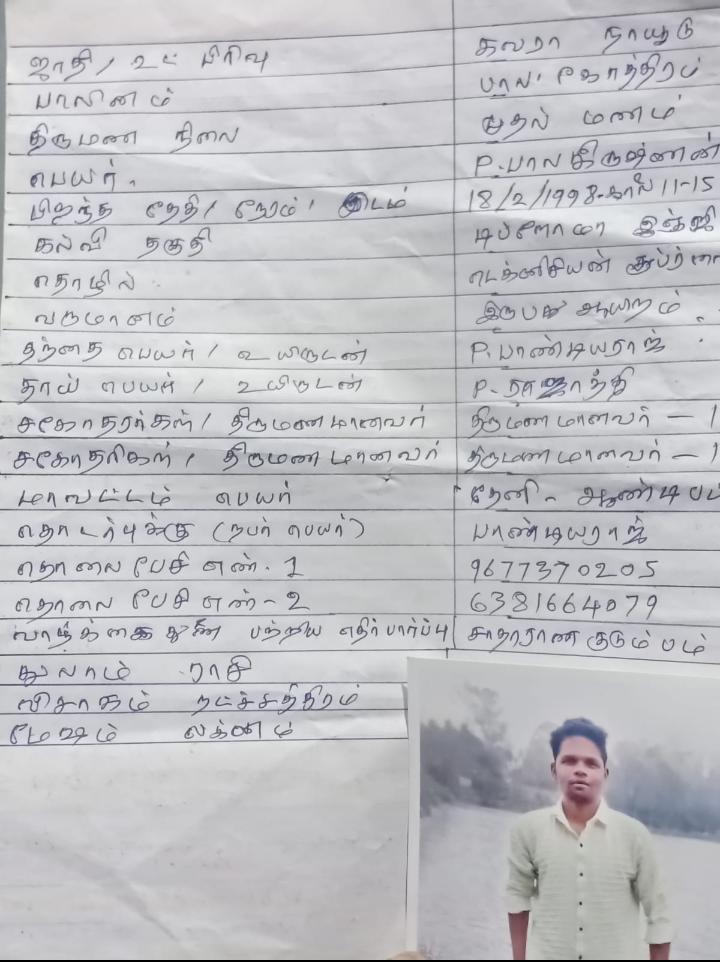 ஜாதி / உட் பிரிவு கவரா நாயுடு
பாலினம் பால. கோத்திரம்
திருமண நிலை முதல் மணம்
பெயர். P.பாலகிருஷ்ணன்
பிறந்த தேதி / நேரம் / இடம் 18/2/1998-காலை 11-15
கல்வி தகுதி டிப்ளோமா இஞ்ஜி
தொழில் டெக்னிசியன்
வருமானம் இருபது ஆயிறம்.
தந்தை பெயர் / உயிருடன் P.பாண்டியராஜ்
தாய் பெயர் / உயிருடன் P.
சகோதரர்கள் / திருமணமானவர் திருமணமானவர் – 1
சகோதரிகள் / திருமணமானவர் திருமணமானவர் – 1
மாவட்டம் பெயர் தேனி - ஆண்டிபட்
தொடர்புக்கு (நபர் பெயர்) பாண்டியராஜ்
தொலை பேசி எண். 1 9677370205
தொலை பேசி எண் – 2 6381664079
வாழ்க்கை துணை பற்றிய எதிர்பார்ப்பு சாதாரான குடும்பம்
துலாம் ராசி
விசாகம் நட்ச்சத்திரம்
மேஷம் லக்னம்